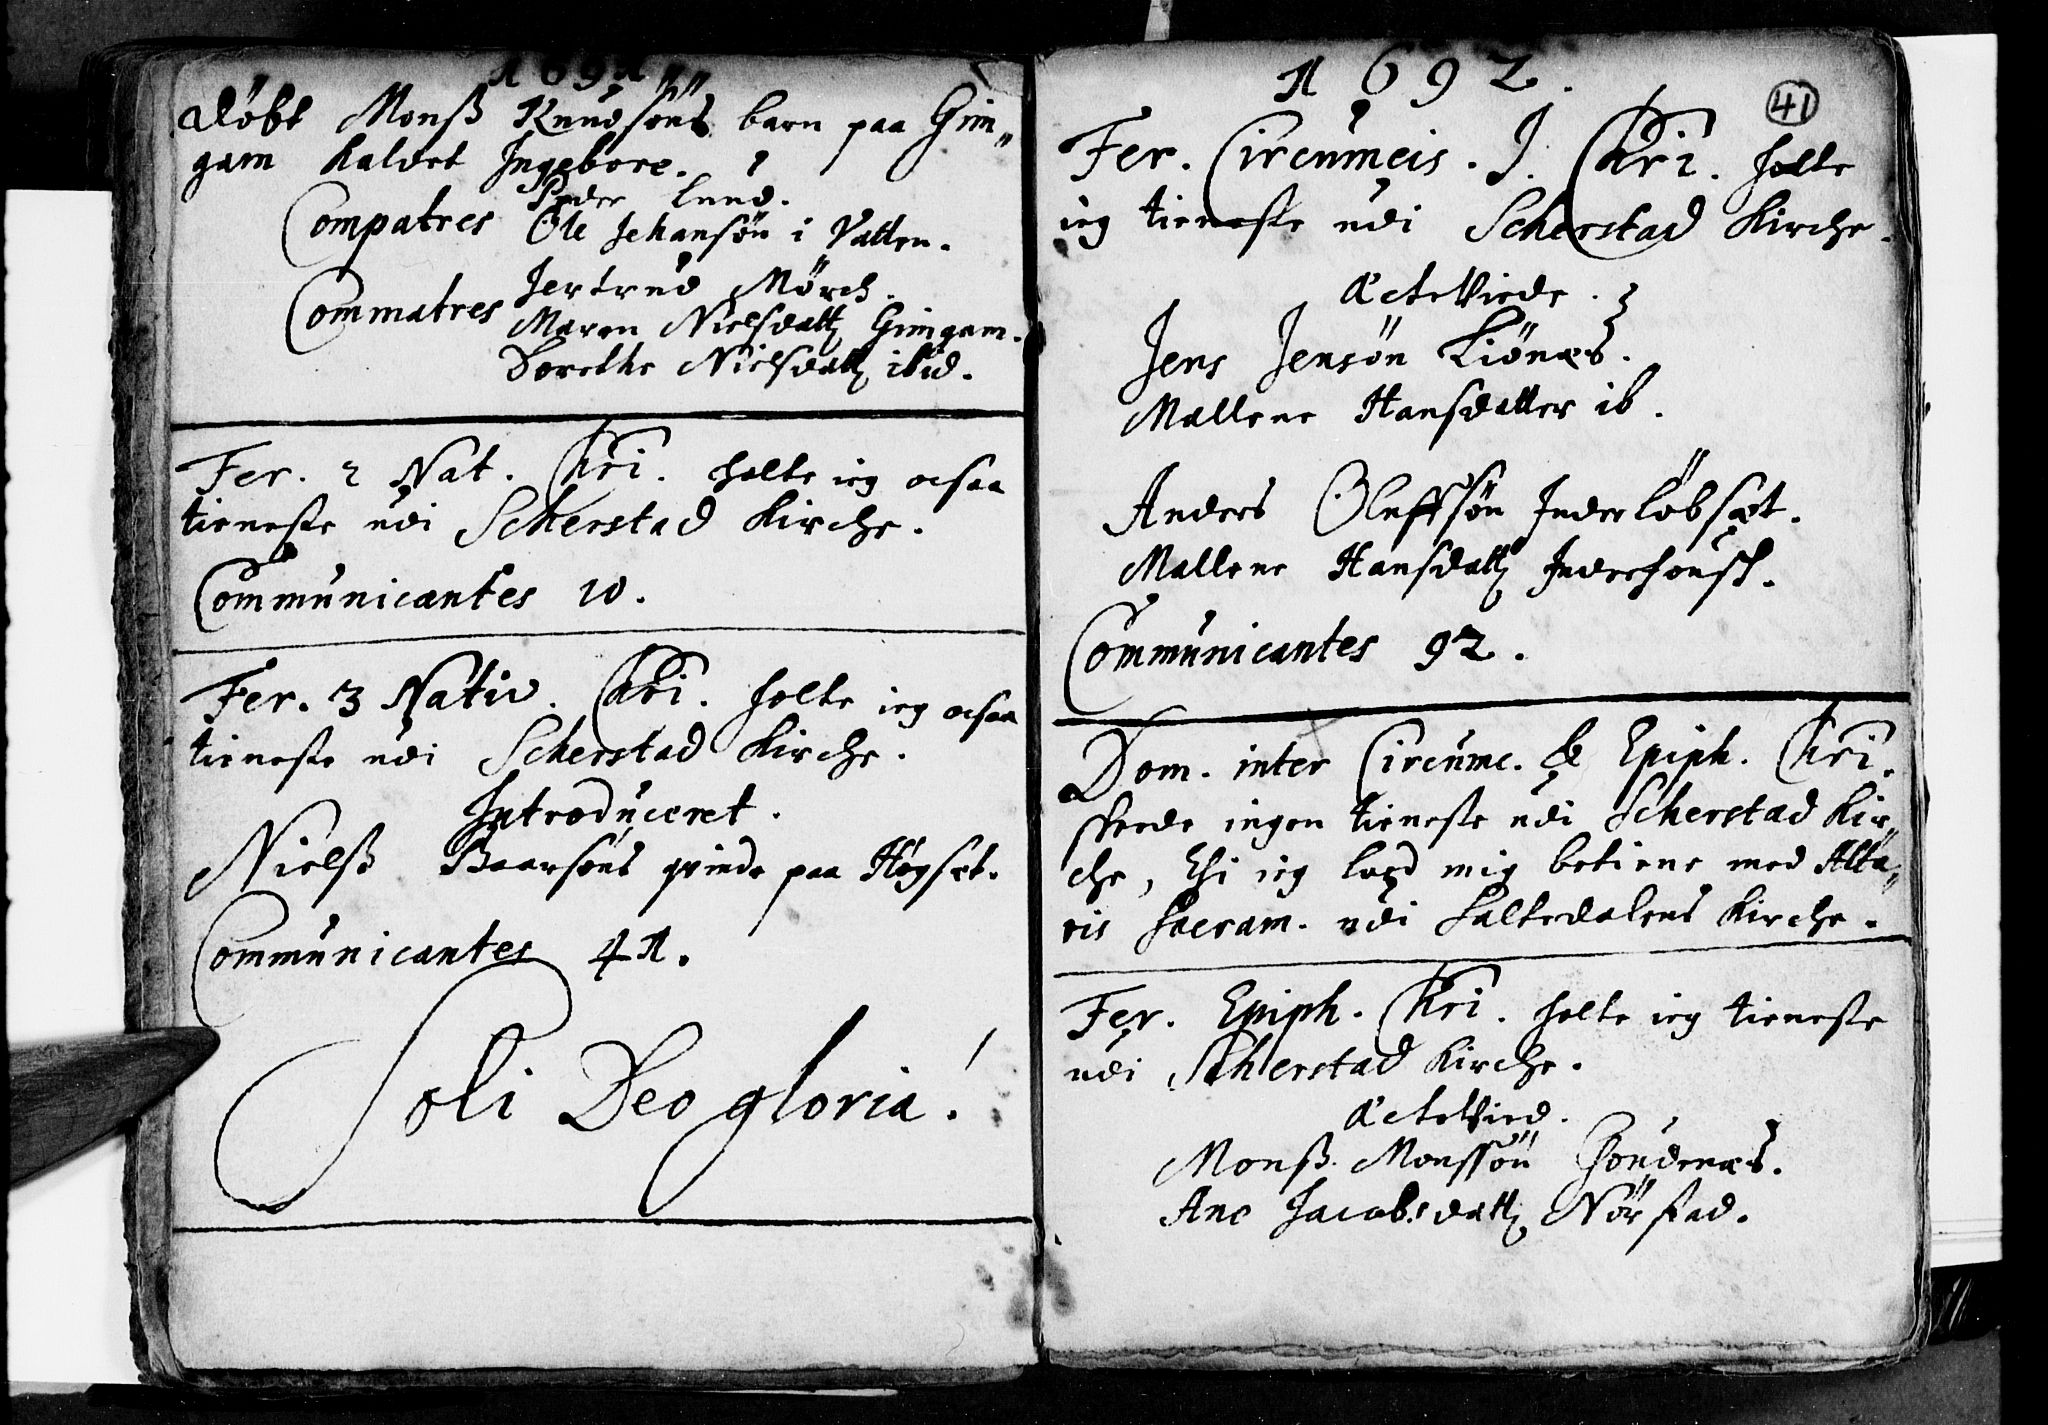 1691
Döbt Monß Knudsöns barn paa Gim„
gam kaldet Ingebore.
Compatres Peder Lund.
Ole Johansön i Vatten.
Commatres Jertrud Mörch.
Maren Nielsdatt Gimgam.
Dorethe Nielsdatt ibid.
Fer. 2 Nat. Chri. holte ieg ocsaa
tieneste udi Scherstad Kirche.
Communicantes 10.
Fer. 3 Nativ. Chri. holte ieg ocsaa
tieneste udi Scherstad Kirche.
Introduceret.
Nielß Baarsöns qvinde paa Högset.
Communicantes 41.
Soli Deo gloria!
1692.
41
Fer. Circumcis. J. Chri. holte
ieg tieneste udi Scherstad Kirche.
Æcteviede.
Jens Jensön Liönæs.
Mallene Hansdatter ib.
Anders Oluffsön Inderlöbsæt.
Mallene Hansdatt
Communicantes 92.
Dom. inter Circumc. & Epiph. Chri.
skeede ingen tieneste udi Scherstad Kir„
che, thi ieg loed mig betiene med Alta„
ris Sacram. udi Saltedalens Kirche.
Fer. Epiph. Chri. holte ieg tieneste
udi Scherstad Kirche.
Æctevied.
Monß Monssön
Ane Jacobsdatt Nörstad.